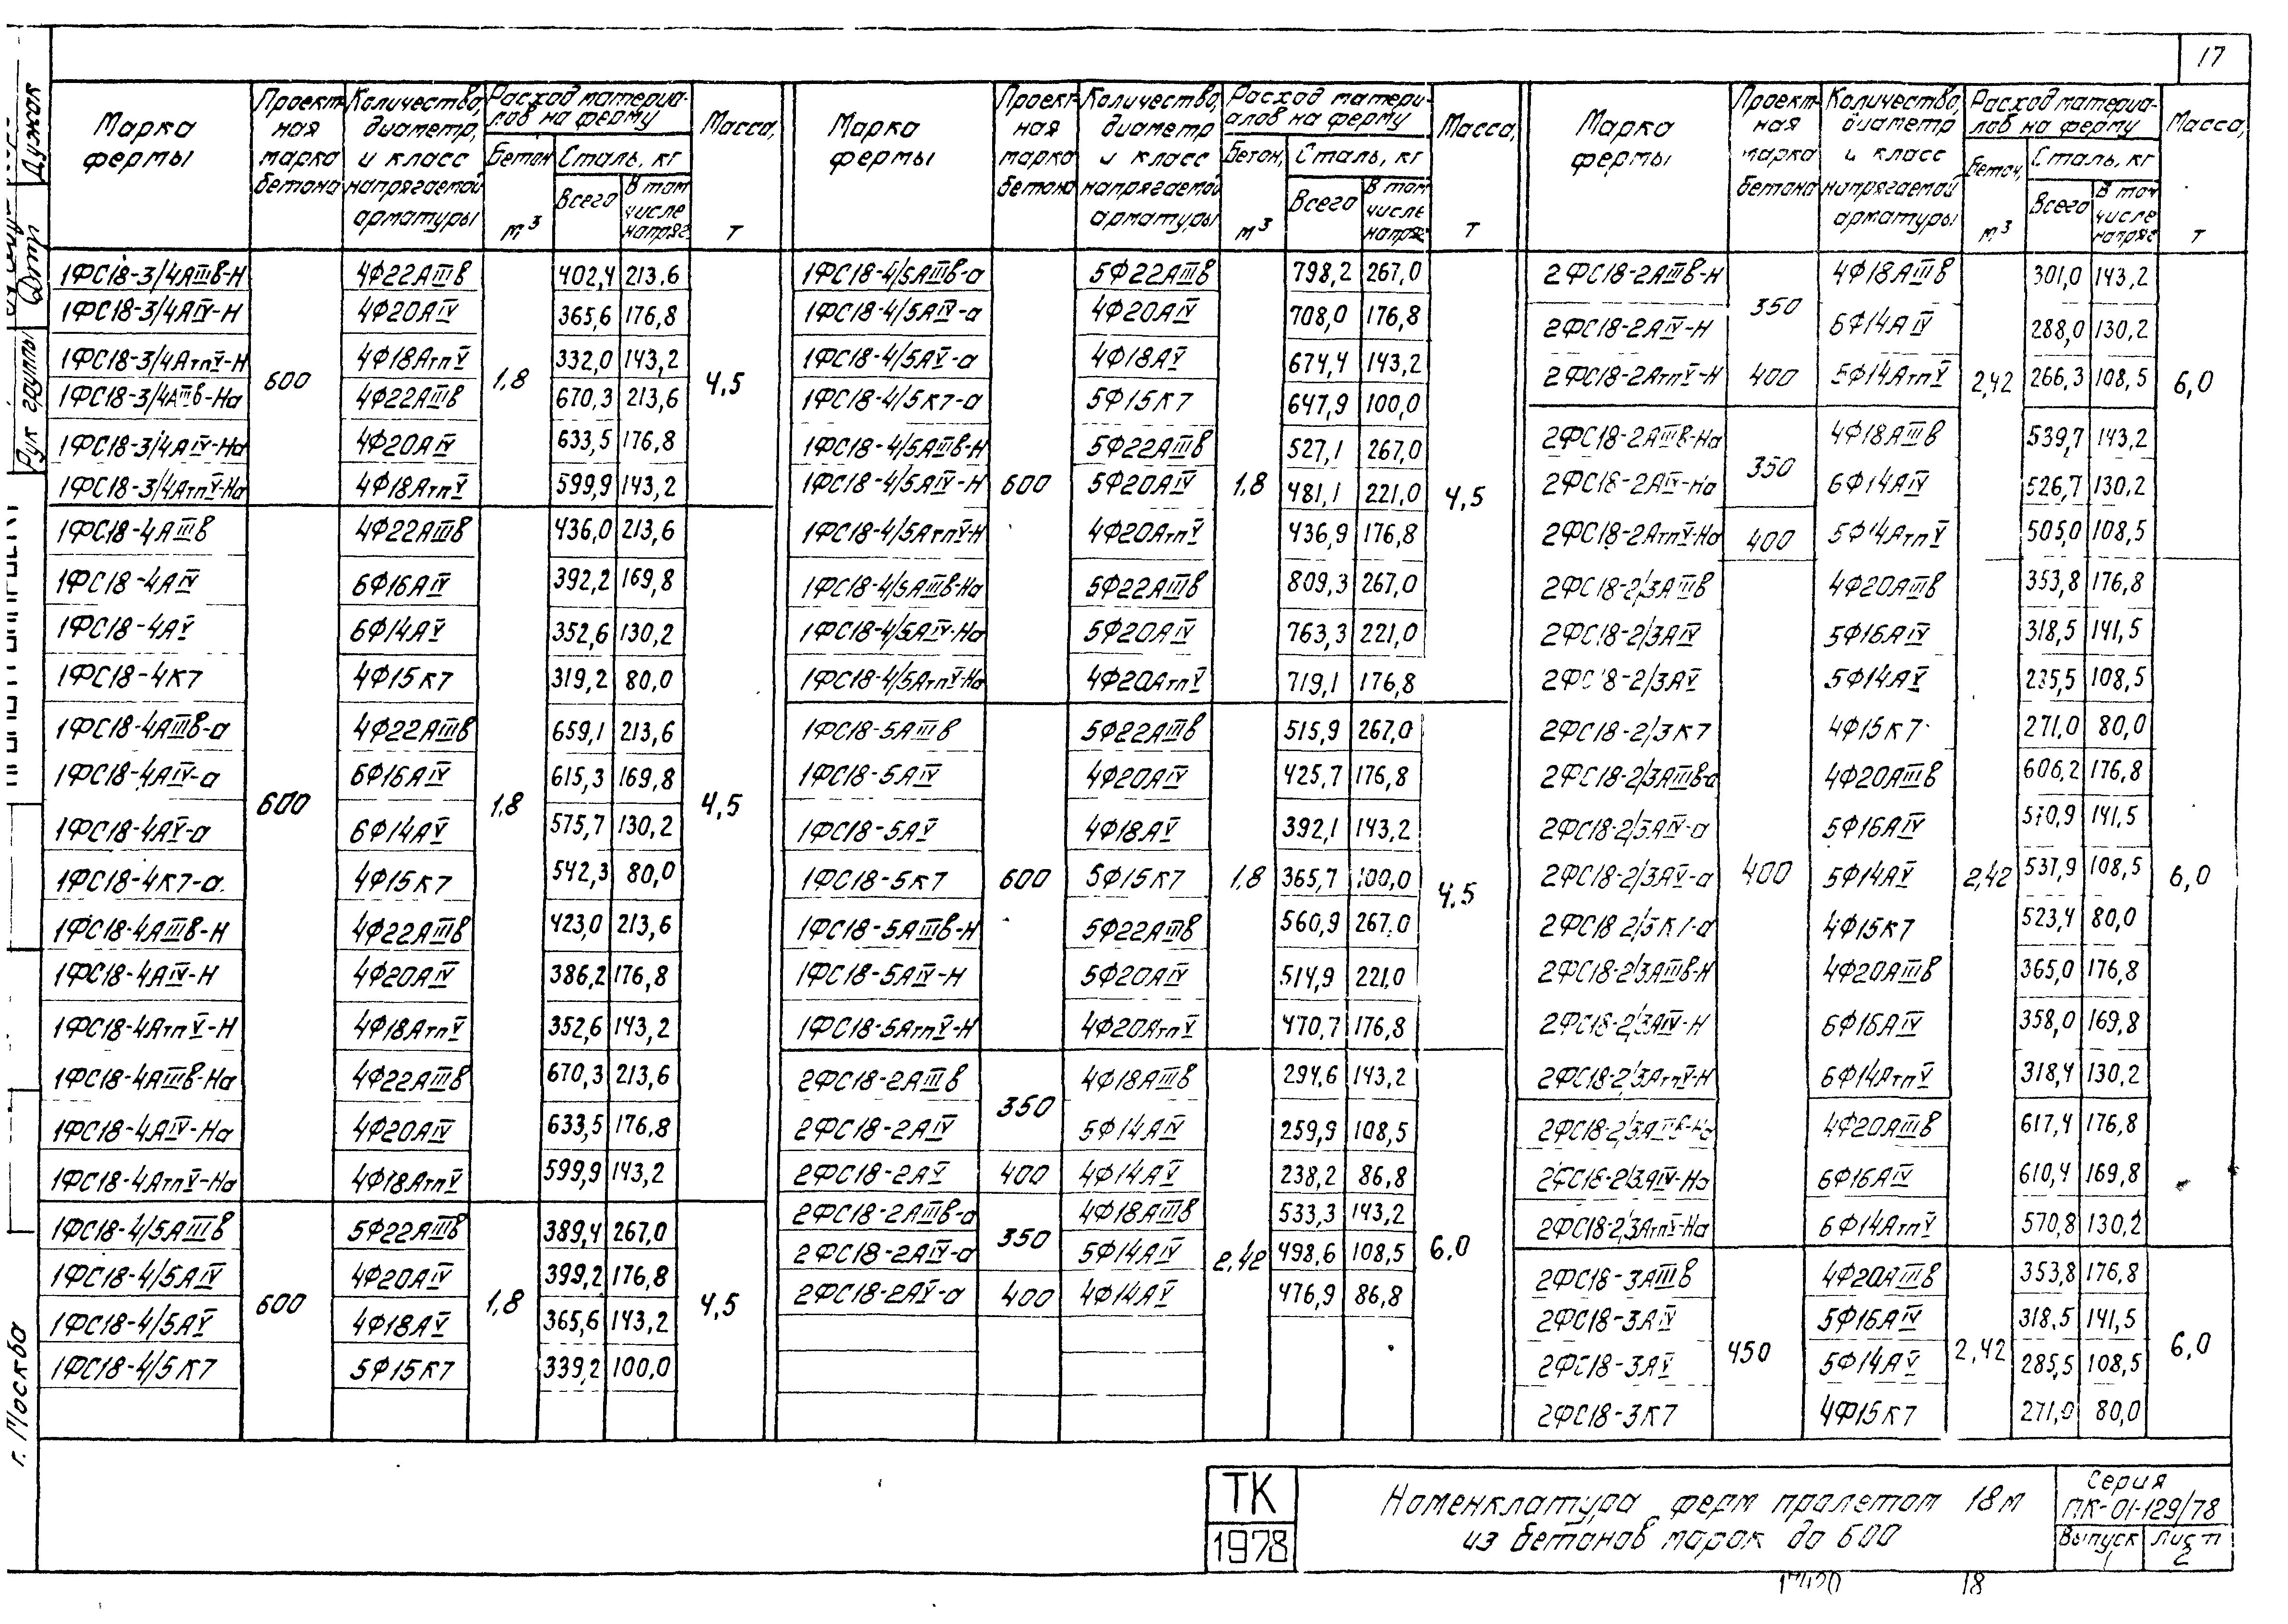 17
Марка фермы | Проектная марка бетона | Количество, диаметр, и класс напрягаемой арматуры | Расход материалов на ферму | Бетон, м³ | Сталь, кг | Всего | В том числе напряг. | Масса, т
1ФС18-3/4АIIIв-Н | 600 | 4Ф22АIIIв | 1,8 | 402,4 | 213,6 | 4,5
1ФС18-3/4АIV-Н | 4Ф20АIV | 365,6 | 176,8
1ФС18-3/4АтпV-Н | 4Ф18АтпV | 332,0 | 143,2
1ФС18-3/4АIIIв-На | 4Ф22АIIIв | 670,3 | 213,6
1ФС18-3/4АIV-На | 4Ф20АIV | 633,5 | 176,8
1ФС18-3/4АтпV-На | 4Ф18АтпV | 599,9 | 143,2
1ФС18-4АIIIв | 600 | 4Ф22АIIIв | 1,8 | 436,0 | 213,6 | 4,5
1ФС18-4АIV | 6Ф16АIV | 392,2 | 169,8
1ФС18-4АV | 6Ф14АV | 352,6 | 130,2
1ФС18-4К7 | 4Ф15К7 | 319,2 | 80,0
1ФС18-4АIIIв-а | 4Ф22АIIIв | 659,1 | 213,6
1ФС18-4АIV-а | 6Ф16АIV | 615,3 | 169,8
1ФС18-4АV-а | 6Ф14АV | 575,7 | 130,2
1ФС18-4К7-а | 4Ф15К7 | 542,3 | 80,0
1ФС18-4АIIIв-Н | 4Ф22АIIIв | 423,0 | 213,6
1ФС18-4АIV-Н | 4Ф20АIV | 386,2 | 176,8
1ФС18-4АтпV-Н | 4Ф18АтпV | 352,6 | 143,2
1ФС18-4АIIIв-На | 4Ф22АIIIв | 670,3 | 213,6
1ФС18-4АIV-На | 4Ф20АIV | 633,5 | 176,8
1ФС18-4АтпV-На | 4Ф18АтпV | 599,9 | 143,2
1ФС18-4/5АIIIв | 600 | 5Ф22АIIIв | 1,8 | 389,4 | 267,0 | 4,5
1ФС18-4/5АIV | 4Ф20АIV | 399,2 | 176,8
1ФС18-4/5АV | 4Ф18АV | 365,6 | 143,2
1ФС18-4/5К7 | 5Ф15К7 | 339,2 | 100,0
Марка фермы | Проектная марка бетона | Количество, диаметр и класс напрягаемой арматуры | Расход материалов на ферму | Бетон, м³ | Сталь, кг | Всего | В том числе напряг. | Масса, т
1ФС18-4/5АIIIв-а | 600 | 5Ф22АIIIв | 1,8 | 798,2 | 267,0 | 4,5
1ФС18-4/5АIV-а | 4Ф20АIV | 708,0 | 176,8
1ФС18-4/5АV-а | 4Ф18АV | 674,4 | 143,2
1ФС18-4/5К7-а | 5Ф15К7 | 647,9 | 100,0
1ФС18-4/5АIIIв-Н | 5Ф22АIIIв | 527,1 | 267,0
1ФС18-4/5АIV-Н | 5Ф20АIV | 481,1 | 221,0
1ФС18-4/5АтпV-Н | 4Ф20АтпV | 436,9 | 176,8
1ФС18-4/5АIIIв-На | 5Ф22АIIIв | 809,3 | 267,0
1ФС18-4/5АIV-На | 5Ф20АIV | 763,3 | 221,0
1ФС18-4/5АтпV-На | 4Ф20АтпV | 719,1 | 176,8
1ФС18-5АIIIв | 600 | 5Ф22АIIIв | 1,8 | 515,9 | 267,0 | 4,5
1ФС18-5АIV | 4Ф20АIV | 425,7 | 176,8
1ФС18-5АV | 4Ф18АV | 392,1 | 143,2
1ФС18-5К7 | 5Ф15К7 | 365,7 | 100,0
1ФС18-5АIIIв-Н | 5Ф22АIIIв | 560,9 | 267,0
1ФС18-5АIV-Н | 5Ф20АIV | 514,9 | 221,0
1ФС18-5АтпV-Н | 4Ф20АтпV | 470,7 | 176,8
2ФС18-2АIIIв | 350 | 4Ф18АIIIв | 2,42 | 294,6 | 143,2 | 6,0
2ФС18-2АIV | 5Ф14АIV | 259,9 | 108,5
2ФС18-2АV | 400 | 4Ф14АV | 238,2 | 86,8
2ФС18-2АIIIв-а | 350 | 4Ф18АIIIв | 533,3 | 143,2
2ФС18-2АIV-а | 5Ф14АIV | 498,6 | 108,5
2ФС18-2АV-а | 400 | 4Ф14АV | 476,9 | 86,8
Марка фермы | Проектная марка бетона | Количество, диаметр и класс напрягаемой арматуры | Расход материалов на ферму | Бетон, м³ | Сталь, кг | Всего | В том числе напряг | Масса, т
2ФС18-2АIIIв-Н | 350 | 4Ф18АIIIв | 2,42 | 301,0 | 143,2 | 6,0
2ФС18-2АIV-Н | 6Ф14АIV | 288,0 | 130,2
2ФС18-2АтпV-Н | 400 | 5Ф14АтпV | 266,3 | 108,5
2ФС18-2АIIIв-На | 350 | 4Ф18АIIIв | 539,7 | 143,2
2ФС18-2АIV-На | 6Ф14АIV | 526,7 | 130,2
2ФС18-2АтпV-На | 400 | 5Ф14АтпV | 505,0 | 108,5
2ФС18-2/3АIIIв | 400 | 4Ф20АIIIв | 2,42 | 353,8 | 176,8 | 6,0
2ФС18-2/3АIV | 5Ф16АIV | 318,5 | 141,5
2ФС18-2/3АV | 5Ф14АV | 108,5
2ФС18-2/3К7 | 4Ф15К7 | 271,0 | 80,0
2ФС18-2/3АIIIв-а | 4Ф20АIIIв | 606,2 | 176,8
2ФС18-2/3АIV-а | 5Ф16АIV | 141,5
2ФС18-2/3АV-а | 5Ф14АV | 537,9 | 108,5
2ФС18-2/3К7-а | 4Ф15К7 | 523,4 | 80,0
2ФС18-2/3АIIIв-Н | 4Ф20АIIIв | 365,0 | 176,8
2ФС18-2/3АIV-Н | 6Ф16АIV | 358,0 | 169,8
2ФС18-2/3АтпV-Н | 6Ф14АтпV | 318,4 | 130,2
2ФС18-2/3АIIIв-На | 4Ф20АIIIв | 617,4 | 176,8
2ФС18-2/3АIV-На | 6Ф16АIV | 610,4 | 169,8
2ФС18-2/3АтпV-На | 6Ф14АтпV | 570,8 | 130,2
2ФС18-3АIIIв | 450 | 4Ф20АIIIв | 2,42 | 353,8 | 176,8 | 6,0
2ФС18-3АIV | 5Ф16АIV | 318,5 | 141,5
2ФС18-3АV | 5Ф14АV | 285,5 | 108,5
2ФС18-3К7 | 4Ф15К7 | 271,0 | 80,0
Рук группы
Дужак
г. Москва
ТК
1978
Номенклатура ферм пролетом 18м
из бетонов марок до 600
Серия
ПК-01-129/78
Выпуск 1
Лист 2
18